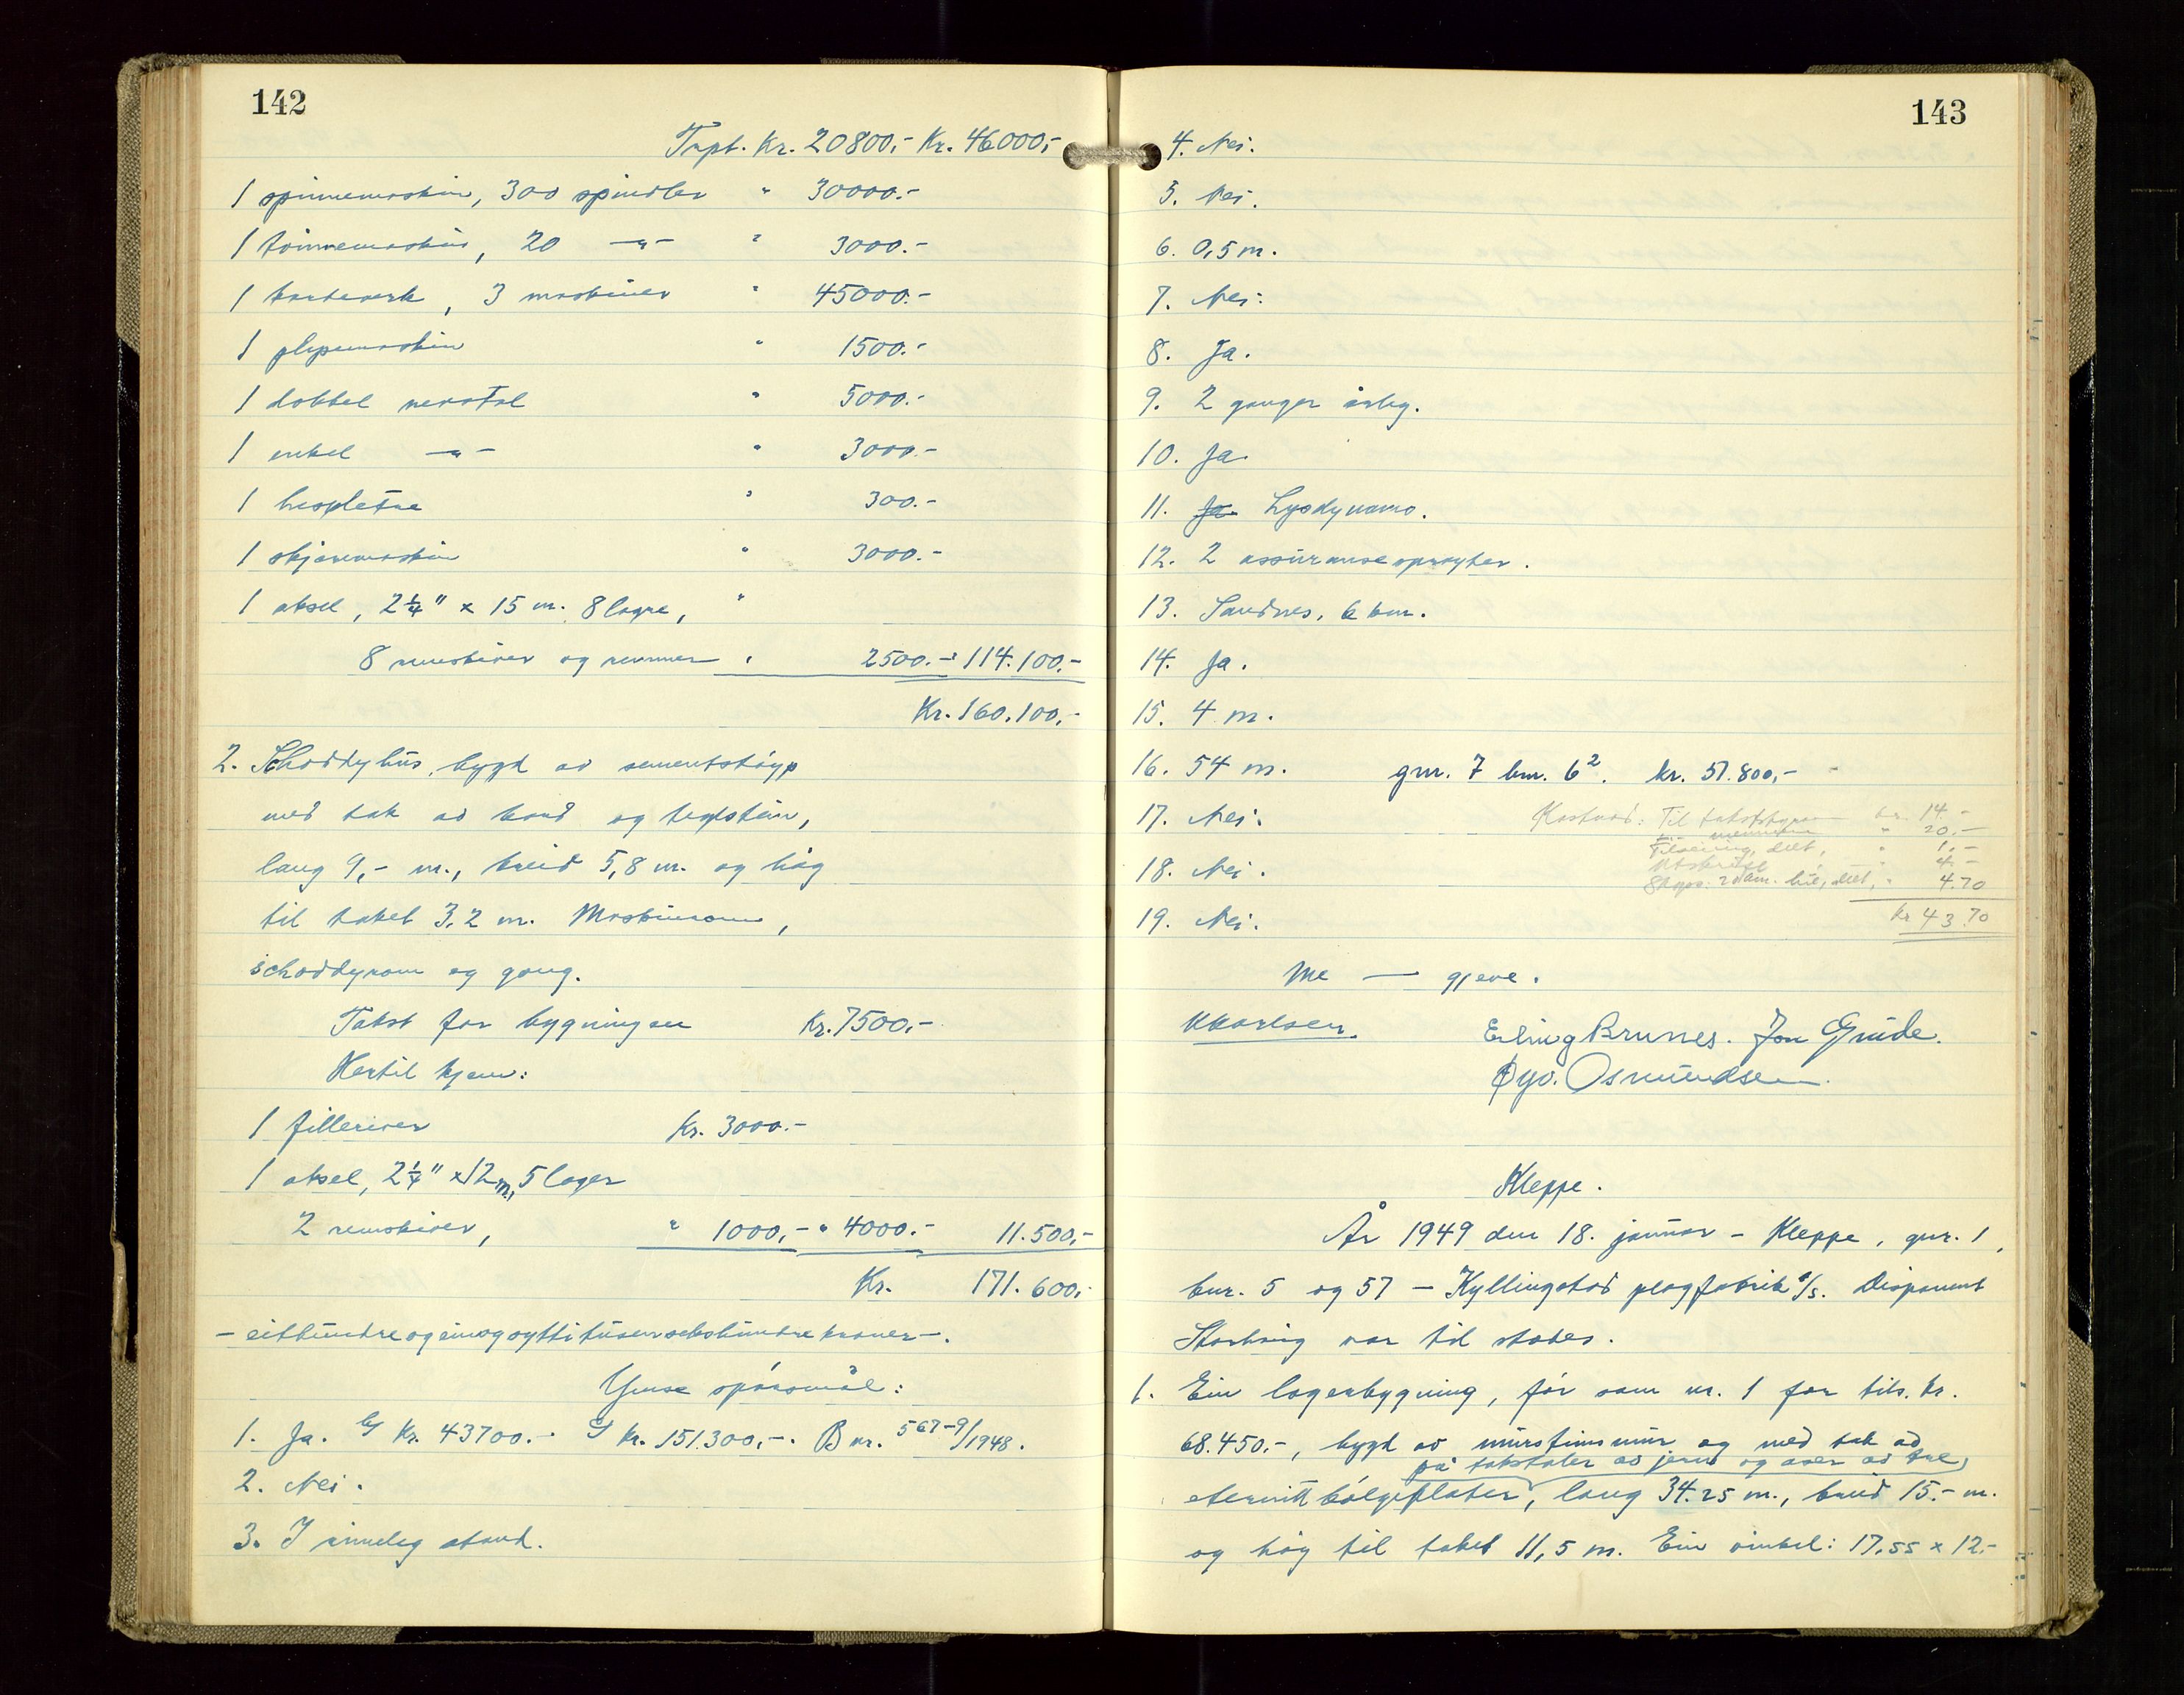 142
Trpt. Kr. 20800,- Kr. 46000,-
1 spinnemaskin, 300 spindler " 30000.-
1 tvinnemaskin, 20 -"- " 3000.-
1 kardeverk, 3 maskiner " 45000.-
1 pluggmaskin " 1500.-
1 dobbel vevstol " 5000.-
1 enkel -"- " 3000.-
1 hespletre " 300.-
1 skjeremaskin " 3000.-
1 aksel, 2¼" x 15 m. 8 lagre, "
8 remskiver og remmer " 2500.- " 114.100.-
Kr. 160.100,-
2. Schoddyhus, bygd av sementstøyp
med tak av bord og teglstein,
lang 9,- m., breid 5,8 m. og høg
til taket 3,2 m. Maskinrom,
schoddyrom og gang.
Takst for bygningen Kr. 7500,-
Hertil kjem:
1 filleriver Kr. 3000.-
1 aksel, 2¼" x 12 m, 5 lager
2 remskiver, " 1000,- " 4000.- 11.500,-
Kr. 171.600,-
- eitthundreogeinogsyttitusensekshundre kroner -.
Ymse spørsmål:
1. Ja. Kr. 43700.- Kr. 151.300,-. B nr. 567-9/1948.
2. Nei.
3. I rimeleg stand.
143
4. Nei.
5. Nei.
6. 0,5 m.
7. Nei.
8. Ja.
9. 2 gonger årleg.
10. Ja.
11. Ja. Lysdynamo.
12. 2 assuransesprøyter.
13. Sandnes, 6 km.
14. Ja.
15. 4 m.
16. 54 m. gnr. 7 bnr. 6². kr. 51.800,-
17. Nei. Kostnad: Til takststyrar kr. 14.-
" 20.-
Tilseiing, delt, " 1,-
18. Nei. Utskrift " 4,-
Skyss: 20 km. bil, delt, " 4.70
19. Nei. Kr 43.70
Me — gjeve.
KKarlsen. Erling Brunes. Jon Grude.
Øyv. Osmundsen.
Kleppe.
År 1949 den 18. januar - Kleppe, gnr. 1,
bnr. 5 og 57 - Kyllingstad plogfabrik A/S. Disponent
var til stades.
1. Ein lagerbygning, før som nr. 1 for tils. kr.
68.450.-, bygd av mursteinsmur og med tak av
på takstoler av jern og åser av tre,
eternitt bølgeplater, lang 34.25 m., breid 15.- m.
og høg til taket 11,5 m. Ein vinkel: 17,55 x 12.-